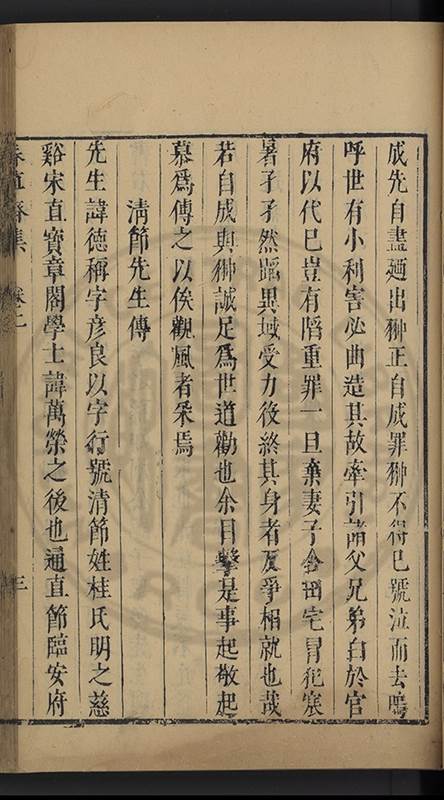 成先自盡廼出翀正自成罪翀不得已號泣而去嗚
呼世有小利害必曲造其故牽引諸父兄弟白於官
府以代已豈有陷重罪一旦棄妻子舍田宅冒犯寒
暑孑孑然踰異域受力役終其身者反爭相就也哉
若自成與翀誠足為世道勸也余目擊是事起敬起
慕爲傳之以俟觀風者采焉
清節先生傳
先生諱德稱字彥良以字行號清節姓桂氏明之慈
谿宋直寶章閣學士諱萬榮之後也通直節臨安府
集 卷二
三